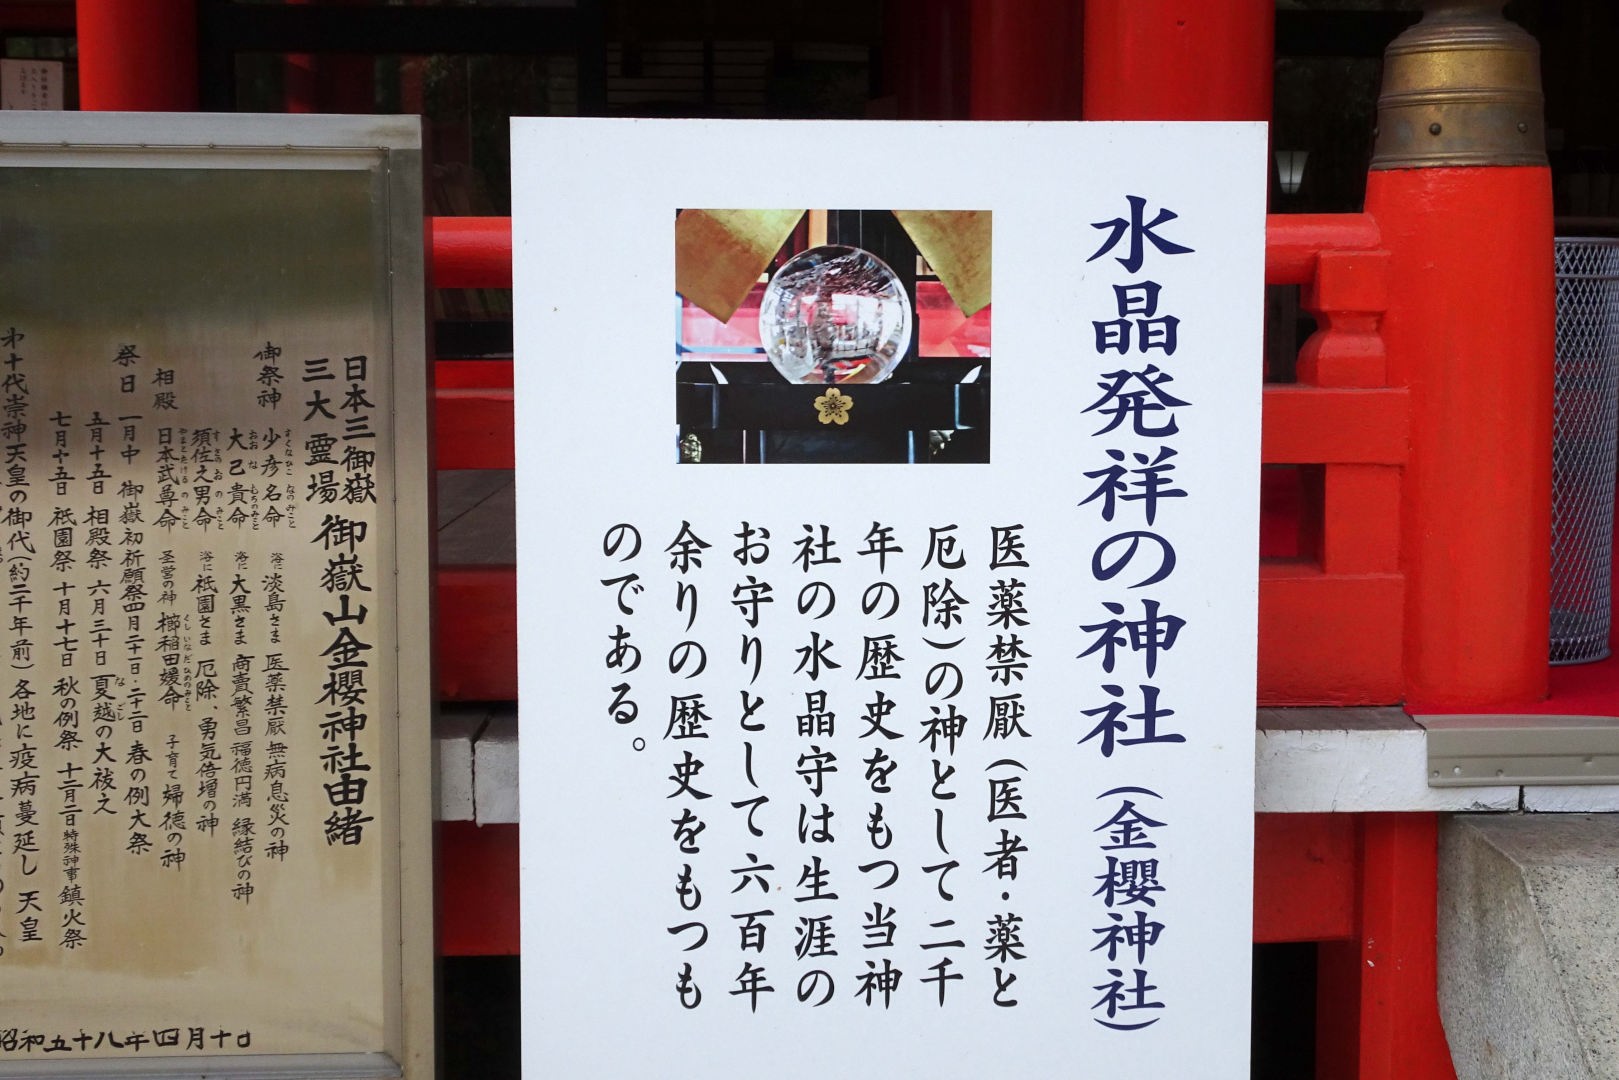 水晶発祥の神社（金櫻神社）
医薬禁厭（医者・薬と
厄除）の神として二千
年の歴史をもつ当神
社の水晶守は生涯の
お守りとして六百年
余りの歴史をもつも
のである。
日本三御嶽
三大霊場
御嶽山金櫻神社由緒
御祭神 少彦名命 俗に淡島さま 医薬禁厭 無病息災の神
大己貴命 俗に大黒さま 商賣繁昌 福徳円満 縁結びの神
須佐之男命 俗に祇園さま 厄除、勇気倍増の神
相殿 日本武尊命 櫛稲田媛命 子育て婦徳の神
祭日 一月中 御嶽初祈願祭 四月二十一日・二十二日 春の例大祭
五月十五日 相殿祭 六月三十日 夏越の大祓え
七月十五日 祇園祭 十月十七日 秋の例祭 十二月二日 特殊神事 鎮火祭
十代崇神天皇の御代（約二千年前）各地に疫病蔓延し 天皇
昭和五十八年四月十日